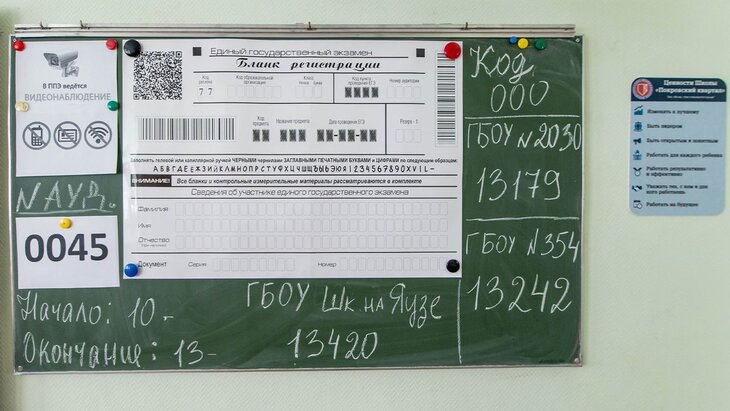 В ППЭ ведётся
ВИДЕОНАБЛЮДЕНИЕ
N АУД.
0045
Начало: 10-
Окончание: 13-
Единый государственный экзамен
Бланк регистрации
Код региона
Код образовательной организации
Класс
Номер Буква
Код пункта проведения ЕГЭ
Номер аудитории
77
Код предмета
Название предмета
Дата проведения ЕГЭ
Резерв - 5
Заполнять гелевой или капиллярной ручкой ЧЕРНЫМИ чернилами ЗАГЛАВНЫМИ ПЕЧАТНЫМИ БУКВАМИ и ЦИФРАМИ по следующим образцам:
АБВГДЕЁЖЗИЙКЛМНОПРСТУФХЦЧШЩЪЫЬЭЮЯ1234567890XVIL-
ВНИМАНИЕ! Все бланки и контрольные измерительные материалы рассматриваются в комплекте
Сведения об участнике единого государственного экзамена
Фамилия
Имя
Отчество
(при наличии)
Документ
Серия
Номер
ГБОУ Шк. на Яузе
13420
Код
ООО
ГБОУ N 2030
13179
ГБОУ N 354
13242
Ценности Школы
«Покровский квартал»
Изменять к лучшему
Быть лидером
Быть открытым и понятным
Работать для каждого ребенка
Работать результативно
и эффективно
Уважать тех, с кем и для
кого работаешь
Работать на будущее